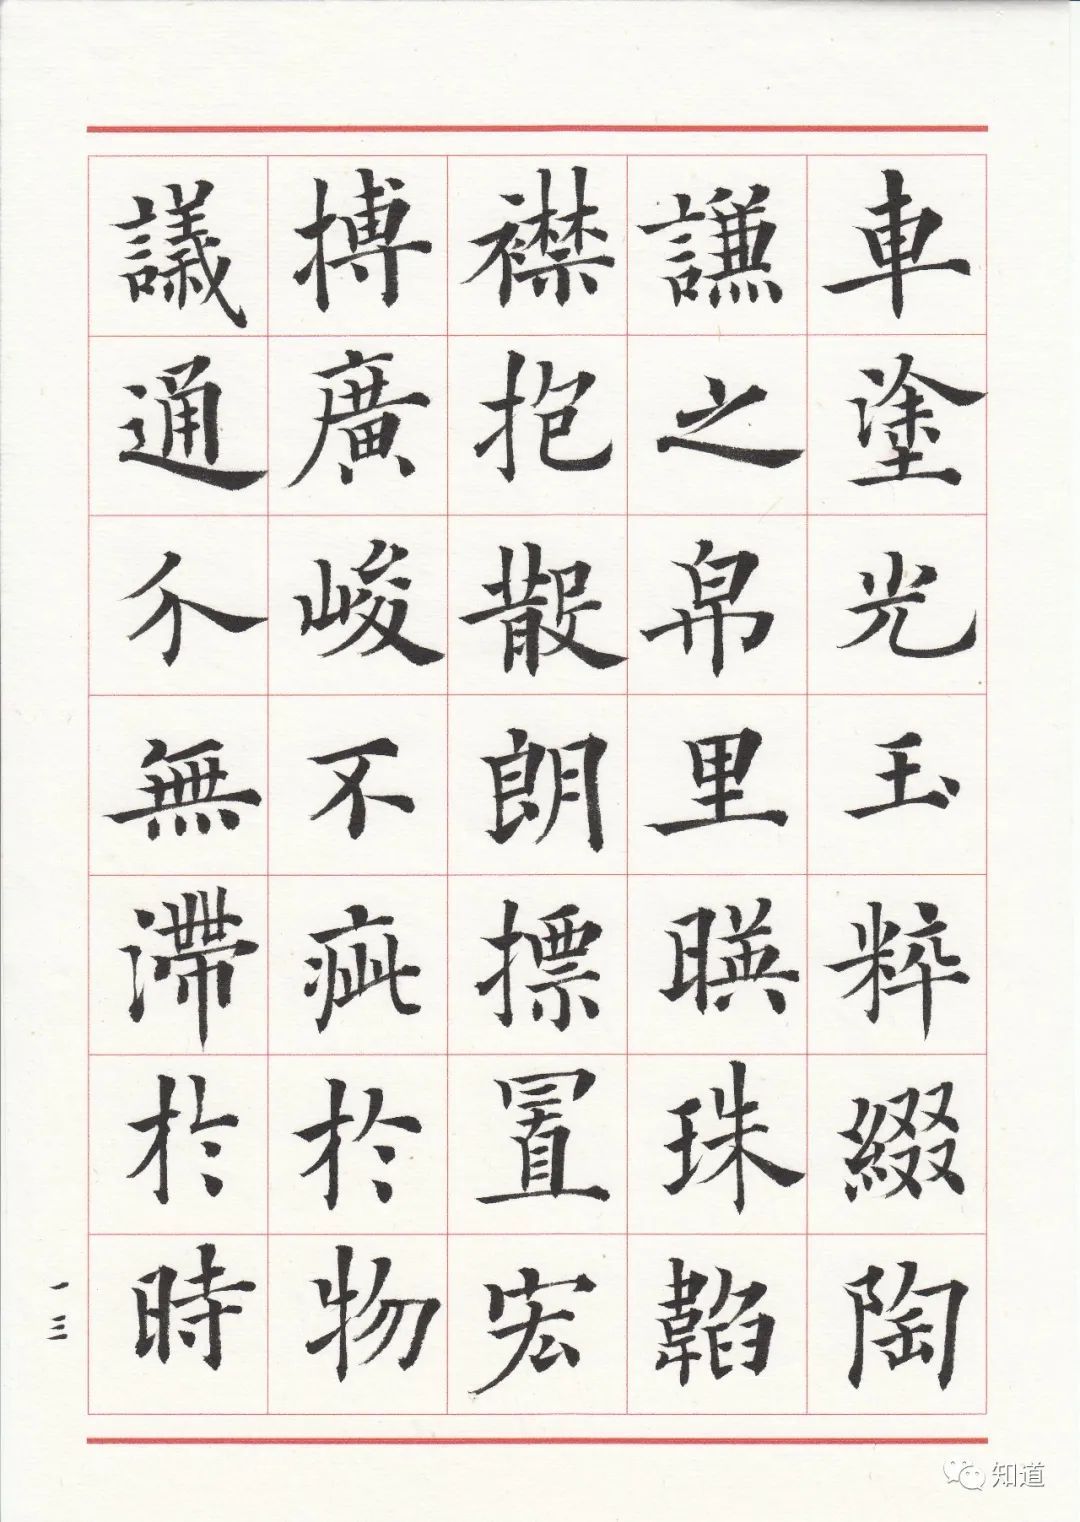 車塗光玉粹綴陶
謙之帛里暎珠韜
襟抱散朗摽置宏
搏廣峻不疵於物
議通介無滯於時
一三
知道